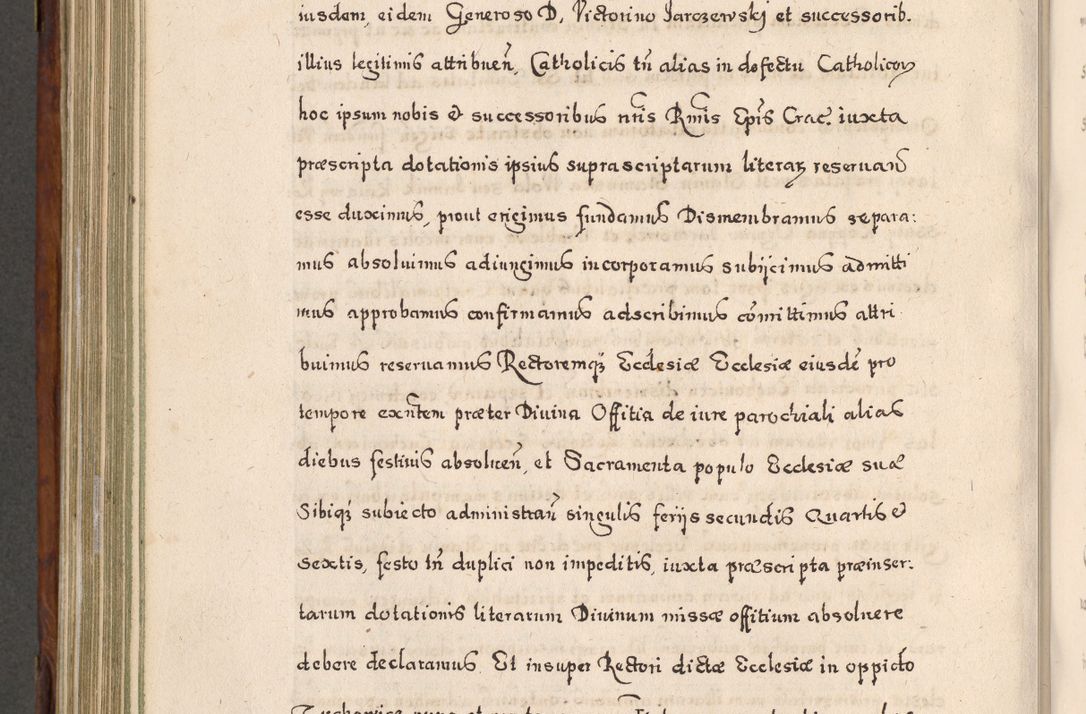 iusdem, eidem Generoso D, Victorino Jarczewskj et successorib.
illius legitimis attribueñ, Catholicis tñ alias in defectu Catholicoꝝ
hoc ipsum nobis & successoribus nr̃is Rm̃is Ep̃is Crac. iuxta
præscripta dotationis ipsius suprascriptarum literaꝝ reseruañ
esse duximus, prout erigimus fundamus Dismembramus separa:
mus absoluimus adiungimus incorporamus subijcimus admitti
mus approbamus confirmamus adscribimus com̃ittimus attri
buimus reseruamus Rectoremqꝫ Ecclesiæ Ecclesiæ eiusdẽ pro
tempore exñtem præter Diuina Offitia de iure parochiali alias
diebus festiuis absolueñ, et Sacramenta populo Ecclesiæ suæ
Sibiqꝫ subiecto administrañ singulis ferijs secundis Quartis &
sextis, festo tñ duplici non impeditis, iuxta præscripta præinser:
tarum dotationis literarum Diuinum missæ offitium absoluere
debere declaramus. Et insuper Rectori dictæ Ecclesiæ in oppido